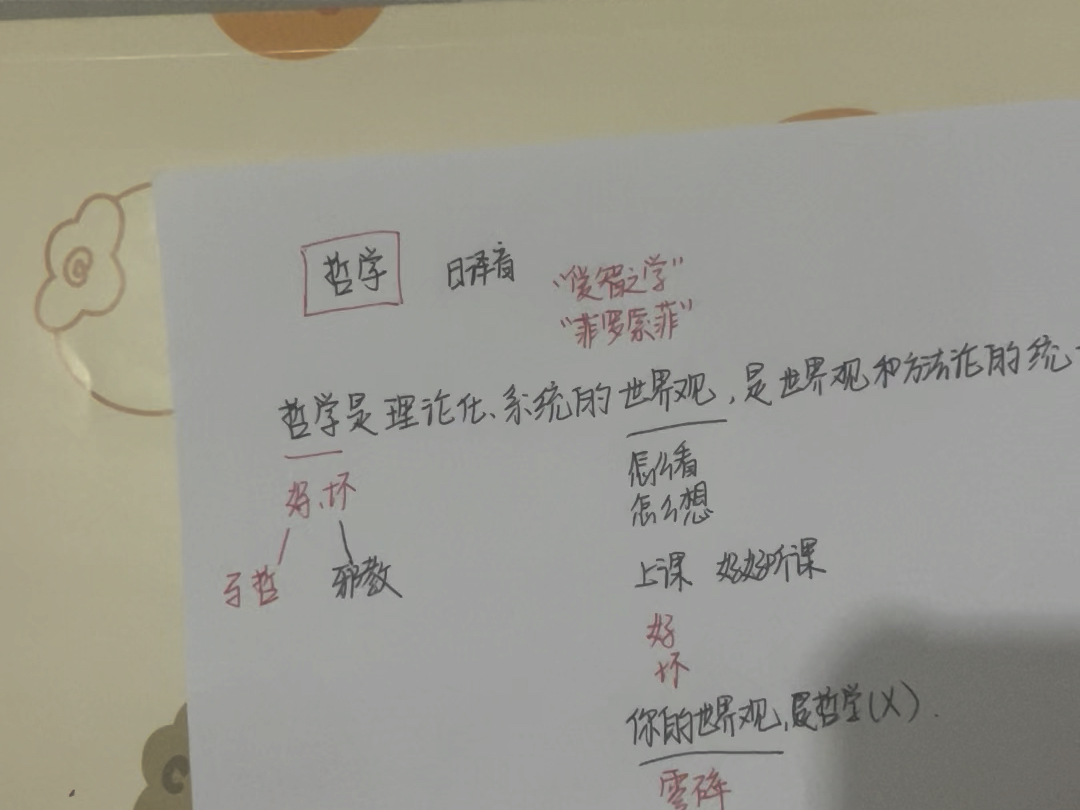 哲学 日译音 “爱智之学”
“菲罗索菲”
哲学是理论化、系统的世界观，是世界观和方法论的统
好、坏
怎么看
怎么想
马哲 邪教
上课 好好听课
好
坏
你的世界观，是哲学(X).
零碎